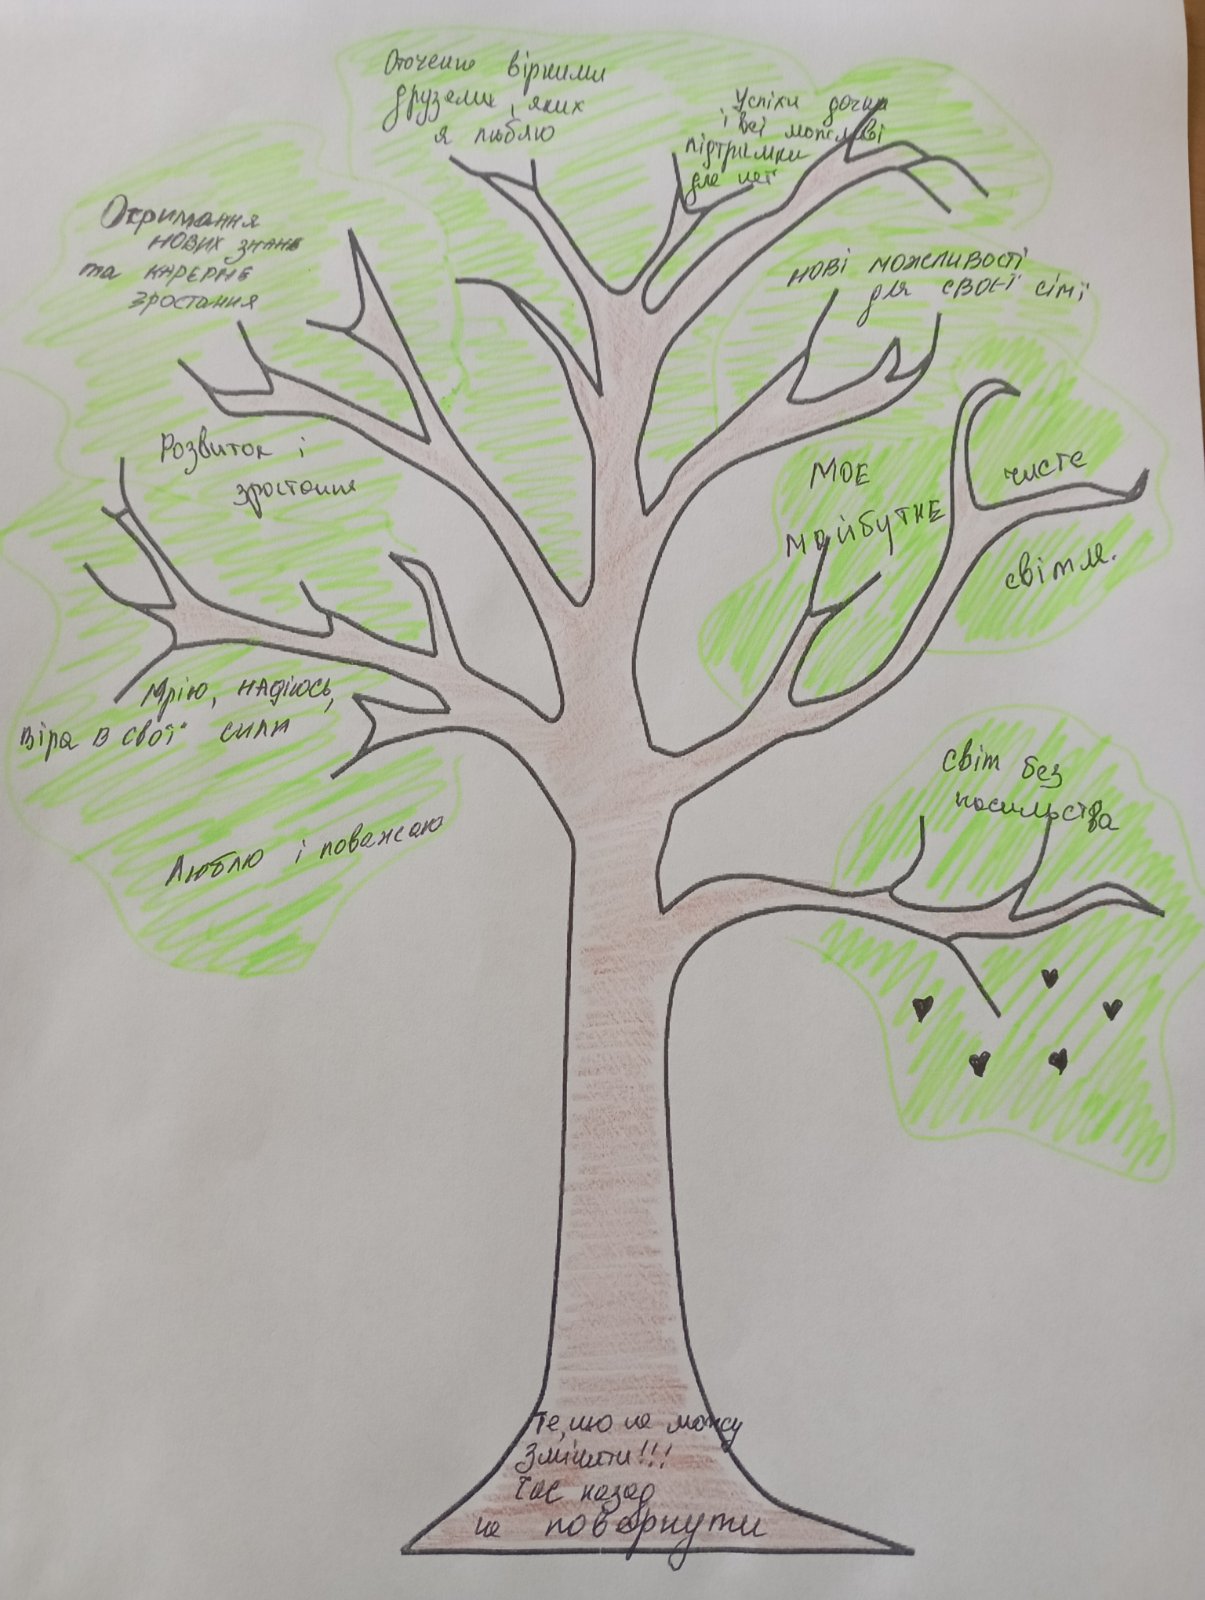 Оточення вірними
друзями, яких
я люблю
Успіхи дочки
і всі можливі
підтримки
для неї
Отримання
нових знань
та карєрне
зростання
нові можливості
для своєї сімї
Розвиток і
зростання
моє
майбутнє
чисте
світле.
Мрію, надіюсь,
віра в свої сили
Люблю і поважаю
світ без
насильства
Те, що не можу
Змінити!!!
Час назад
не повернути